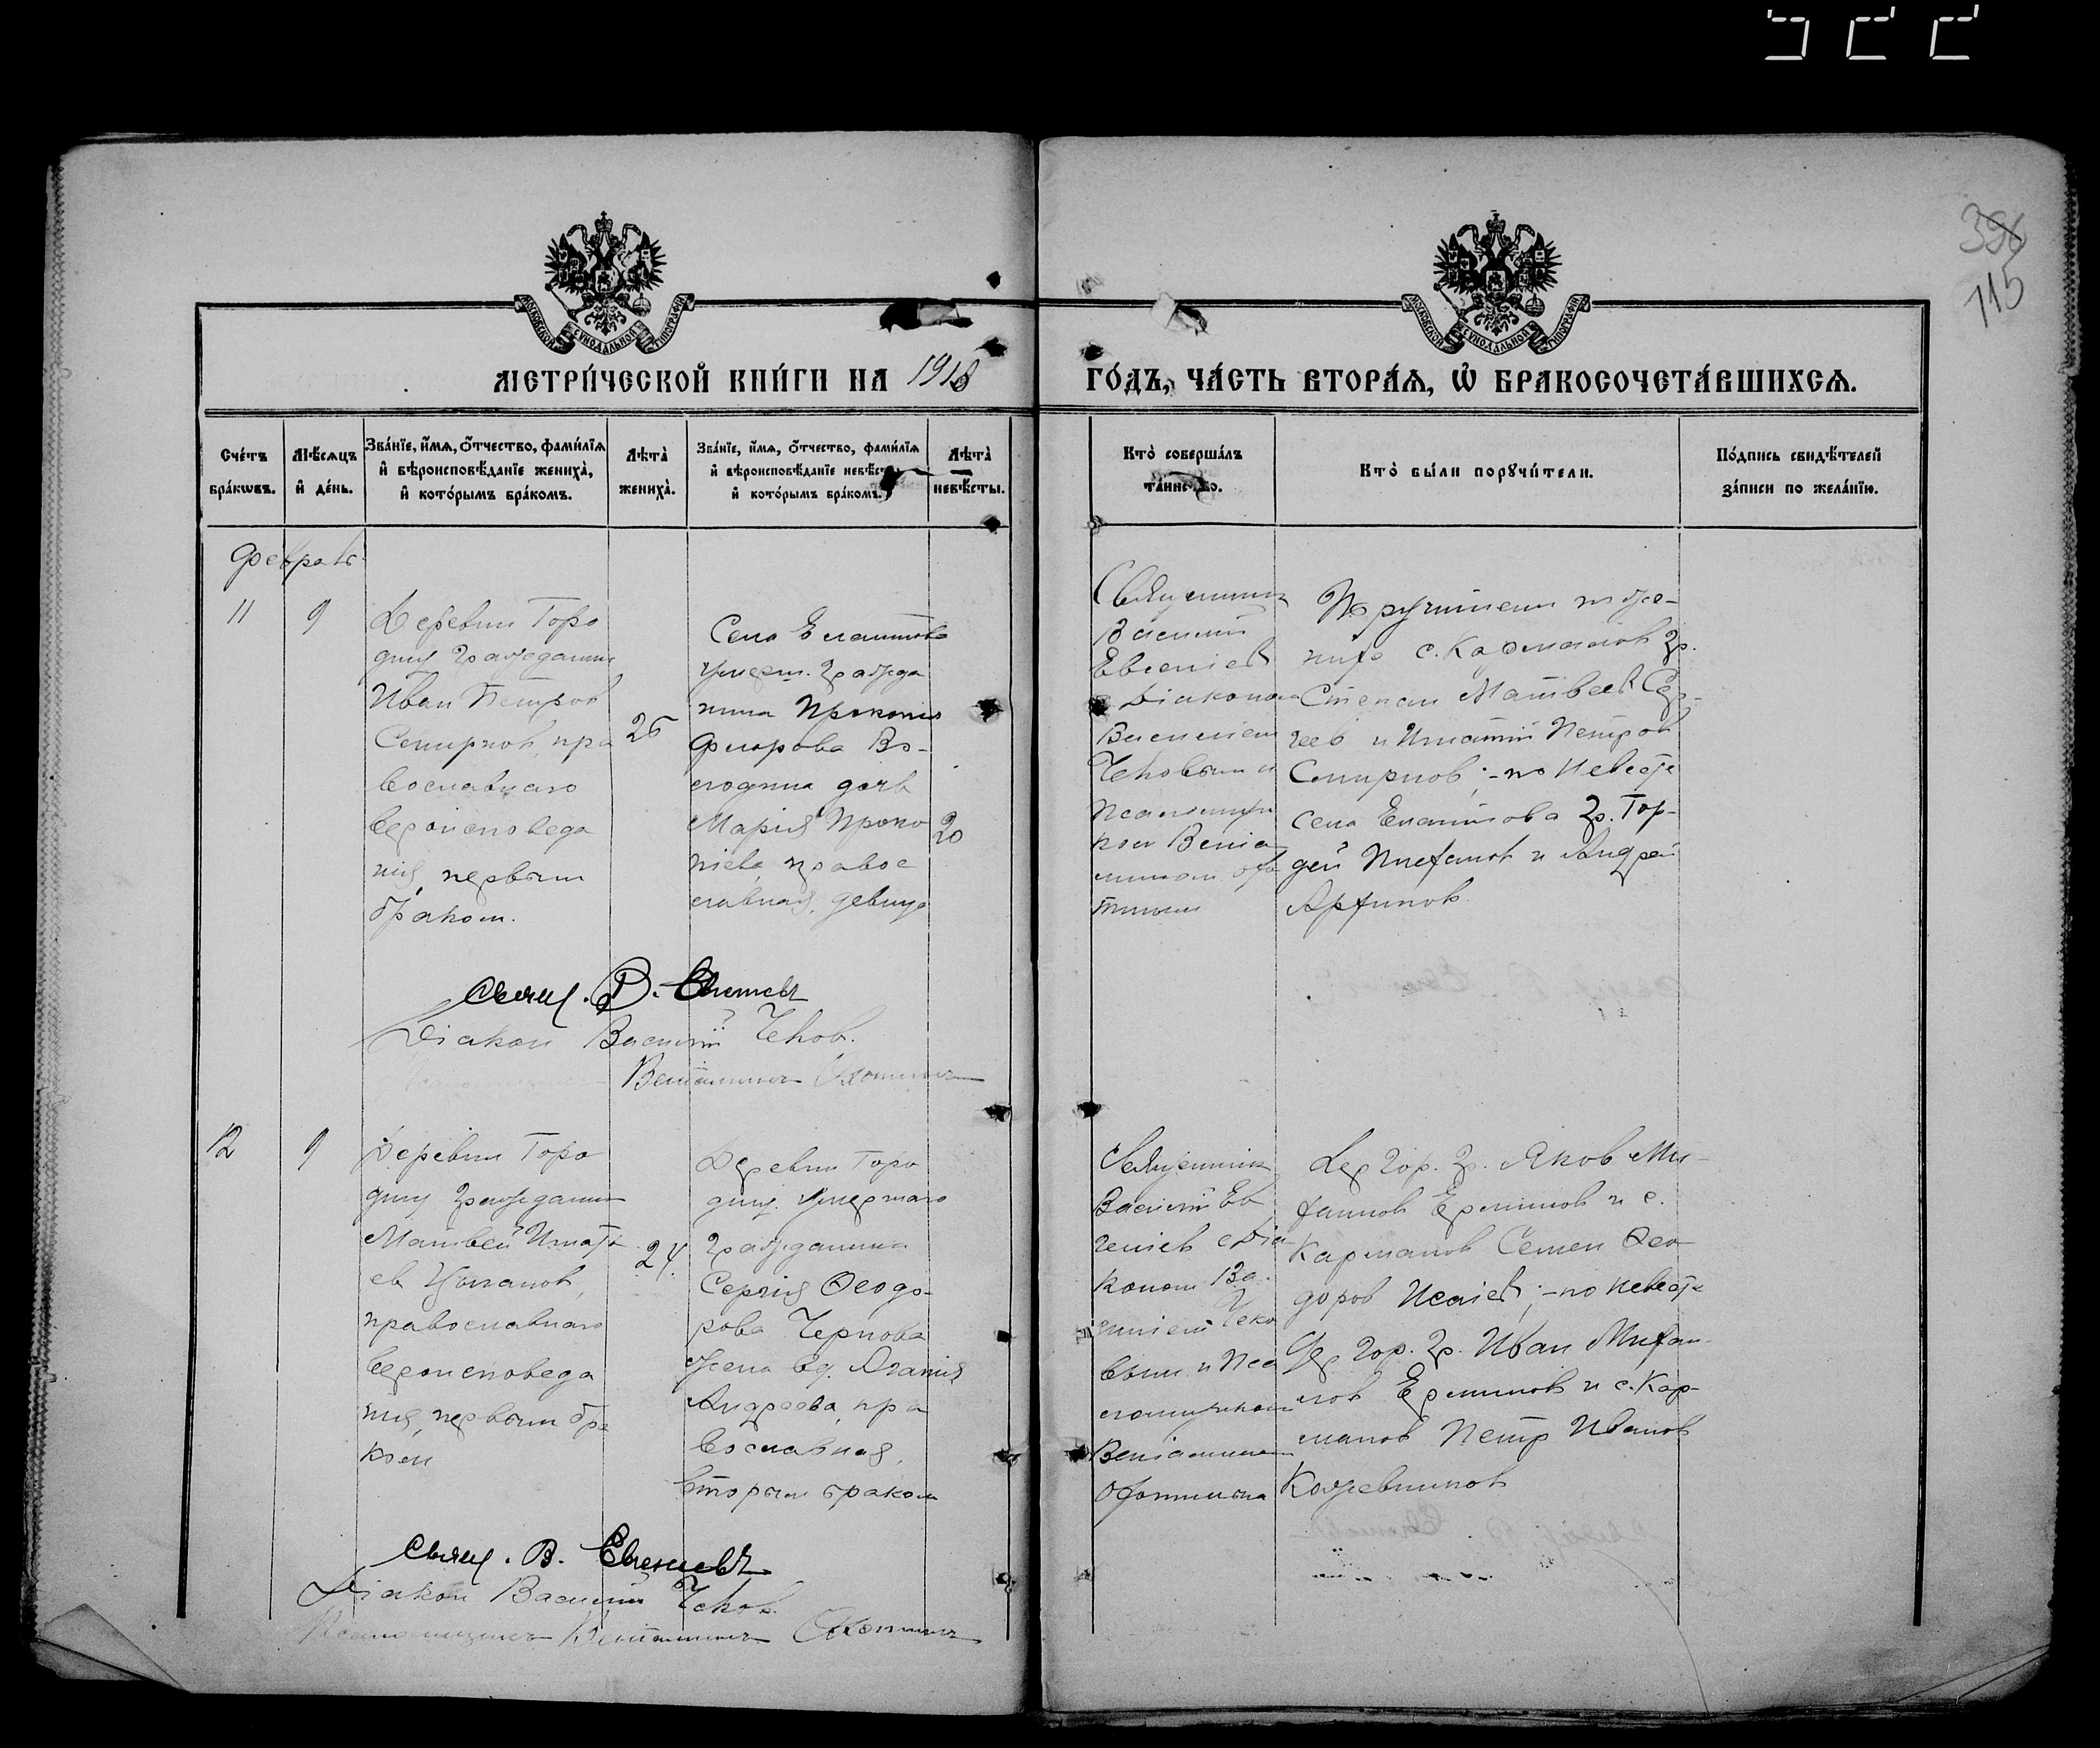 396
115
МОСКОВСКОЙ СѴНОДАЛЬНОЙ ТИПОГРАФІИ
МОСКОВСКОЙ СѴНОДАЛЬНОЙ ТИПОГРАФІИ
МЕТРИ́ЧЕСКОЙ КНИ́ГИ НА 1918 ГО́ДЪ, ЧА́СТЬ ВТОРА́Ѧ, Ѽ БРАКОСОЧЕТА́ВШИХСѦ.
Сче́тъ бра́кѡвъ.
Мѣ́сѧцъ и҆ де́нь.
Зва́нїе, и҆́мѧ, ѻ҆́тчество, фами́лїѧ и҆ вѣроисповѣ́данїе жениха̀, и҆ кото́рымъ бра́комъ.
Лѣ́та̀ жениха̀.
Зва́нїе, и҆́мѧ, ѻ҆́тчество, фами́лїѧ и҆ вѣроисповѣ́данїе невѣ́сты, и҆ кото́рымъ бра́комъ.
Лѣ́та̀ невѣ́сты.
Кто̀ соверша́лъ та́инство.
Кто̀ бы́ли порꙋчи́тели.
По́дпись свидѣ́телей за́писи по жела́нїю.
Февраль
11
9
Деревни Горо
дищ гражданин
Иван Петров
Смирнов, пра
вославнаго
вероисповеда
нія, первым
браком.
26
Села Елатмова
умерш. гражда
нина Прокопія
Флорова Во-
лодина дочь
Марія Проко
піева, правос
лавная, девица
20
Священник
Василий
Евгениев
с Діаконом
Василием
Чековым и
Псаломщи
ком Вениа
мином Охо
тиным
Поручители по же-
нихе с. Карманов гр.
Степан Матвеев Сер-
геев и Игнатий Петров
Смирнов; - по невесте
села Елатмова гр. Гор-
дей и Андрей
Свящ. В. Евгениев
Діакон Василий Чеков.
Вениаминъ Охотинъ
12
9
Деревни Горо
дищ гражданин
Матвей Игнать
ев Цыганов,
православнаго
вероисповеда
нія, первым бра
ком
24
Деревни Горо
дищ. умершаго
гражданина
Сергія Ѳеодо-
рова Чернова
жена вд.
Андреева, пра
вославная,
вторым браком
Священник
Василий Ев
гениев с Діа
коном Ва
силием Чеко
вым и Пса
ломщиком
Вениамином
Охотиным
Дер. Гор. гр. Яков Ми-
хаилов Ермилов и с.
Карманов Семен Ѳео
доров Исаіев; - по невесте
Дер. Гор. гр. Иван Михаи-
лов Ермилов и с. Кар-
манов Петр Иванов
Кожевников
Свящ. В. Евгениевъ
Діакон Василий Чеков.
Псаломщикъ Вениаминъ Охотинъ